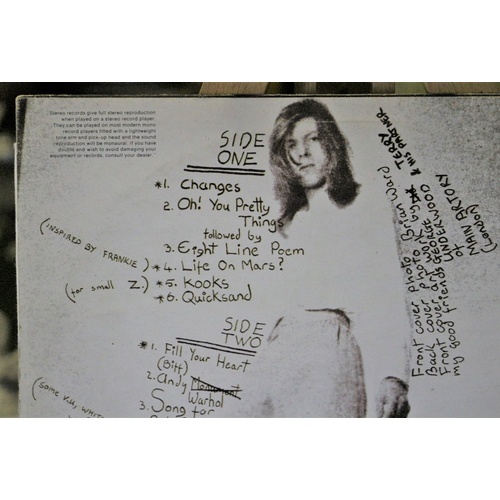 Stereo records give full stereo reproduction
when played on a stereo record player.
They can be played on most modern mono
record players fitted with a lightweight
tone arm and pick-up head and the sound
reproduction will be monaural. If you have
doubts and wish to avoid damaging your
equipment or records, consult your dealer.
SIDE
ONE
*1. Changes
2. Oh! You Pretty
Things
followed by
3. Eight Line Poem
(INSPIRED BY FRANKIE) *4. Life On Mars?
(for small Z.) *5. Kooks
*6. Quicksand
SIDE
TWO
*1. Fill Your Heart
(Biff)
2. Andy
Warhol
3. Song for
(Some V.U., WHITE
Front cover photo Brian Ward
Back cover photo
Front cover art by TERRY & HIS PARTNER
my good friends GEORGE
UNDERWOOD
of
MAIN ARTORY
(London)